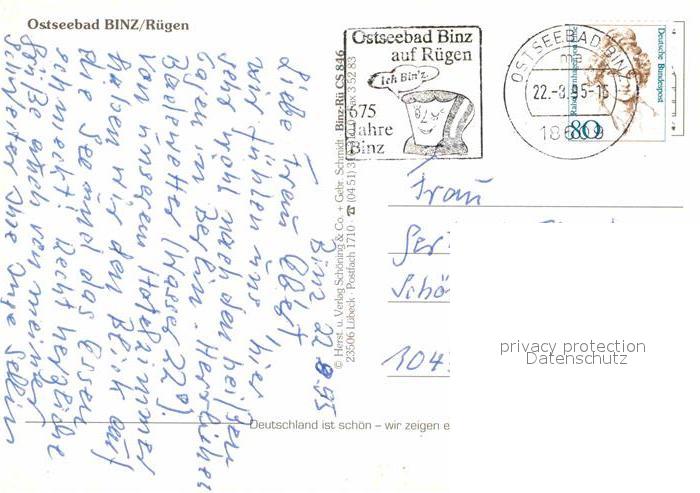 Ostseebad BINZ/Rügen
Ostseebad Binz
auf Rügen
Ich Bin'z
675
Jahre
Binz
OSTSEEBAD BINZ
22.-8.95-15
18609
Deutsche Bundespost
80
Binz 22.8.95
Liebe Frau
wir fühlen uns hier
sehr wohl nach den heißen
Tagen in Berlin. Herrliches
Badewetter (Wasser 22°).
Von unserem Hotelzimmer
haben wir den Blick auf
die See und das Essen
schmeckt! Recht herzliche
Grüße auch von meiner
Schwester Ihre
© Herst. u. Verlag Schöning & Co. + Gebr. Schmidt · Binz-Rü CS 846
23506 Lübeck · Postfach 1710 · ☎ (04 51) 3
Frau
Ger
Schö
104
privacy protection
Datenschutz
Deutschland ist schön – wir zeigen e